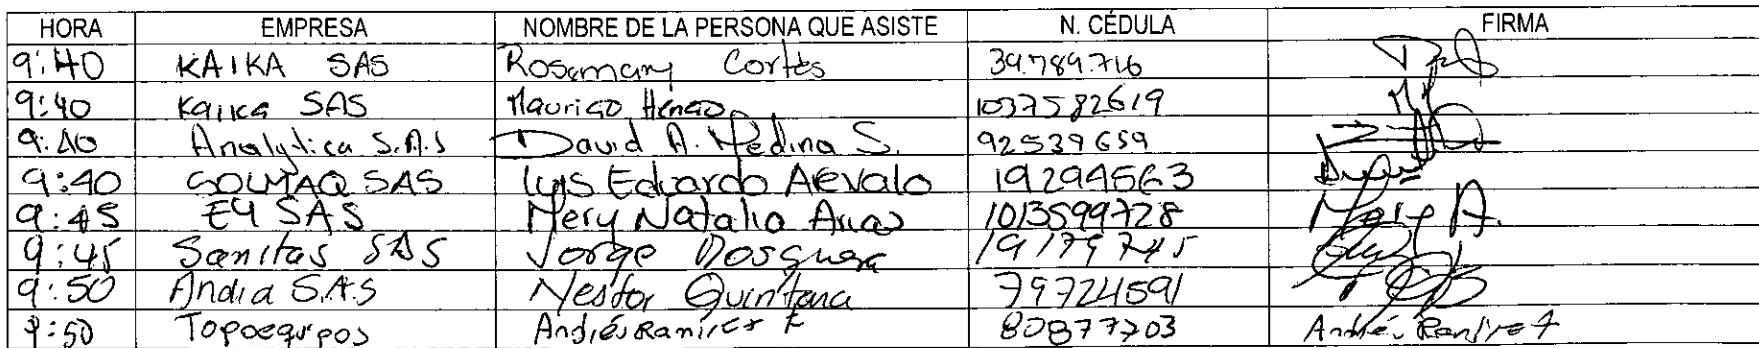 HORA EMPRESA NOMBRE DE LA PERSONA QUE ASISTE N. CÉDULA FIRMA
9:40 KAIKA SAS Rosemary Cortés 39.789.716
9:40 Kaika SAS Mauricio Henao 1037582619
9:40 Analytica S.A.S David A. Medina S. 92539659
9:40 SOLMAQ SAS Luis Eduardo Aevalo 19294563
9:45 E4 SAS Mery Natalia Arias 1013599728 Mery A.
9:45 Sanitas SAS Jorge Mosquera 19179745
9:50 Andia S.A.S Nestor Quintana 79724591
9:50 Topoequipos Andrés Ramirez F 80877703 Andrés Ramirez F